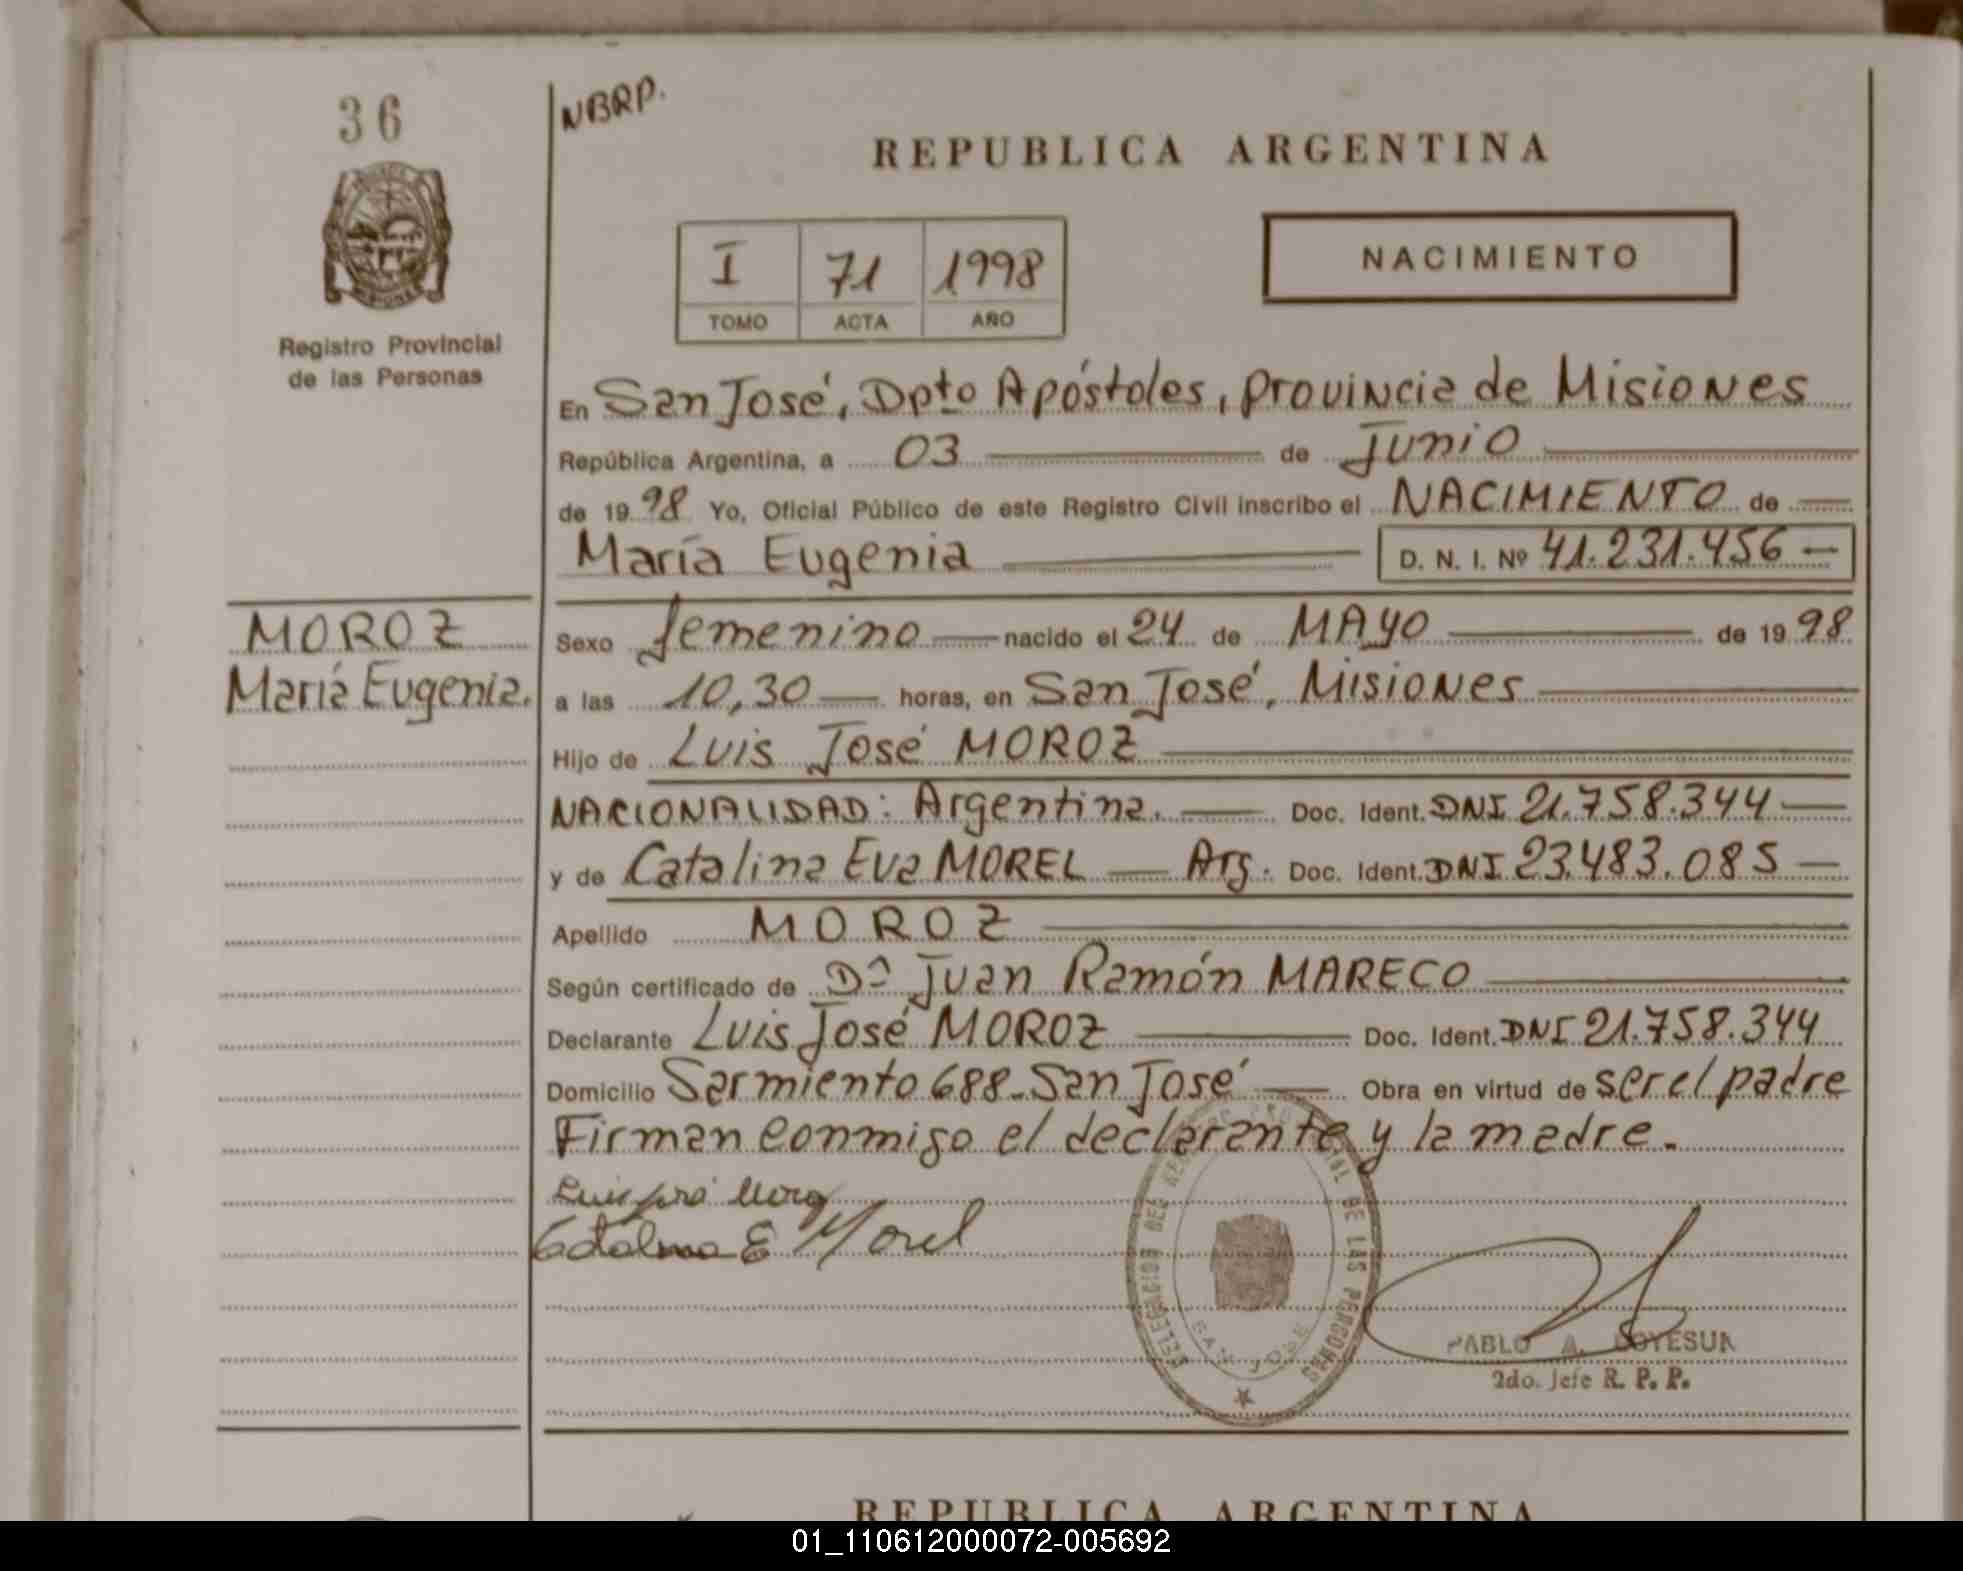 36
NBRP.
REPUBLICA ARGENTINA
MISIONES
Registro Provincial
de las Personas
I 71 1998
TOMO ACTA AÑO
NACIMIENTO
En San José, Dpto Apóstoles, provincia de Misiones
República Argentina, a 03 de Junio
de 1998 Yo, Oficial Público de este Registro Civil inscribo el NACIMIENTO de
María Eugenia D. N. I. Nº 41.231.456
MOROZ
María Eugenia.
Sexo femenino nacido el 24 de MAYO de 1998
a las 10,30 horas, en San José, Misiones
Hijo de Luis José MOROZ
NACIONALIDAD: Argentina. Doc. Ident. DNI 21.758.344
y de Catalina Eva MOREL Arg. Doc. Ident. DNI 23.483.085
Apellido MOROZ
Según certificado de Dº Juan Ramón MARECO
Declarante Luis José MOROZ Doc. Ident. DNI 21.758.344
Domicilio Sarmiento 688-San José Obra en virtud de ser el padre
Firman conmigo el declarante y la madre.
Luis José Moroz
Catalina E Morel
DELEGACION DEL DE LAS PERSONAS
SAN JOSE
PABLO A.
2do. Jefe R. P. P.
REPUBLICA ARGENTINA
01_110612000072-005692